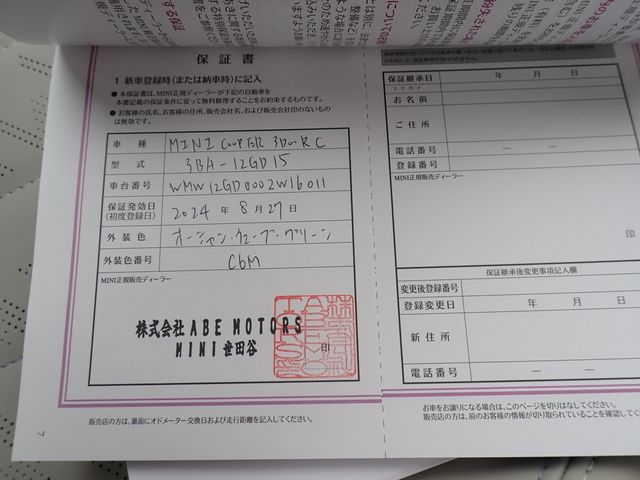 保証書
1 新車登録時(または納車時)に記入
●本保証書は、MINI正規ディーラーが下記の自動車を
本書記載の保証条件に従って無料修理することをお約束するものです。
●お客様の氏名、お客様の住所、販売会社名、および販売会社印のないもの
は無効です。
車種 MINI COOPER 3DOOR C
型式 3BA-12GD15
車台番号 WMW12GD0002W16011
保証発効日
(初度登録日) 2024年8月27日
外装色 オーシャン・ウェーブ・グリーン
外装色番号 C6M
MINI正規販売ディーラー
株式会社ABE MOTORS
MINI世田谷
印
販売店の方は、裏面にオドメーター交換日および走行距離を記入してください。
7
保証継承日 年 月 日
フリガナ
お名前
ご住所
電話番号 ー ー
登録番号
MINI正規販売ディーラー
保証継承後変更事項記入欄
変更後登録番号
登録変更日 年 月 日
新住所
電話番号 ー ー
お車をお譲りになる場合は、このページを切りはなしてください。
販売店の方は、前のお客様の情報が切り取られていることを確認してく